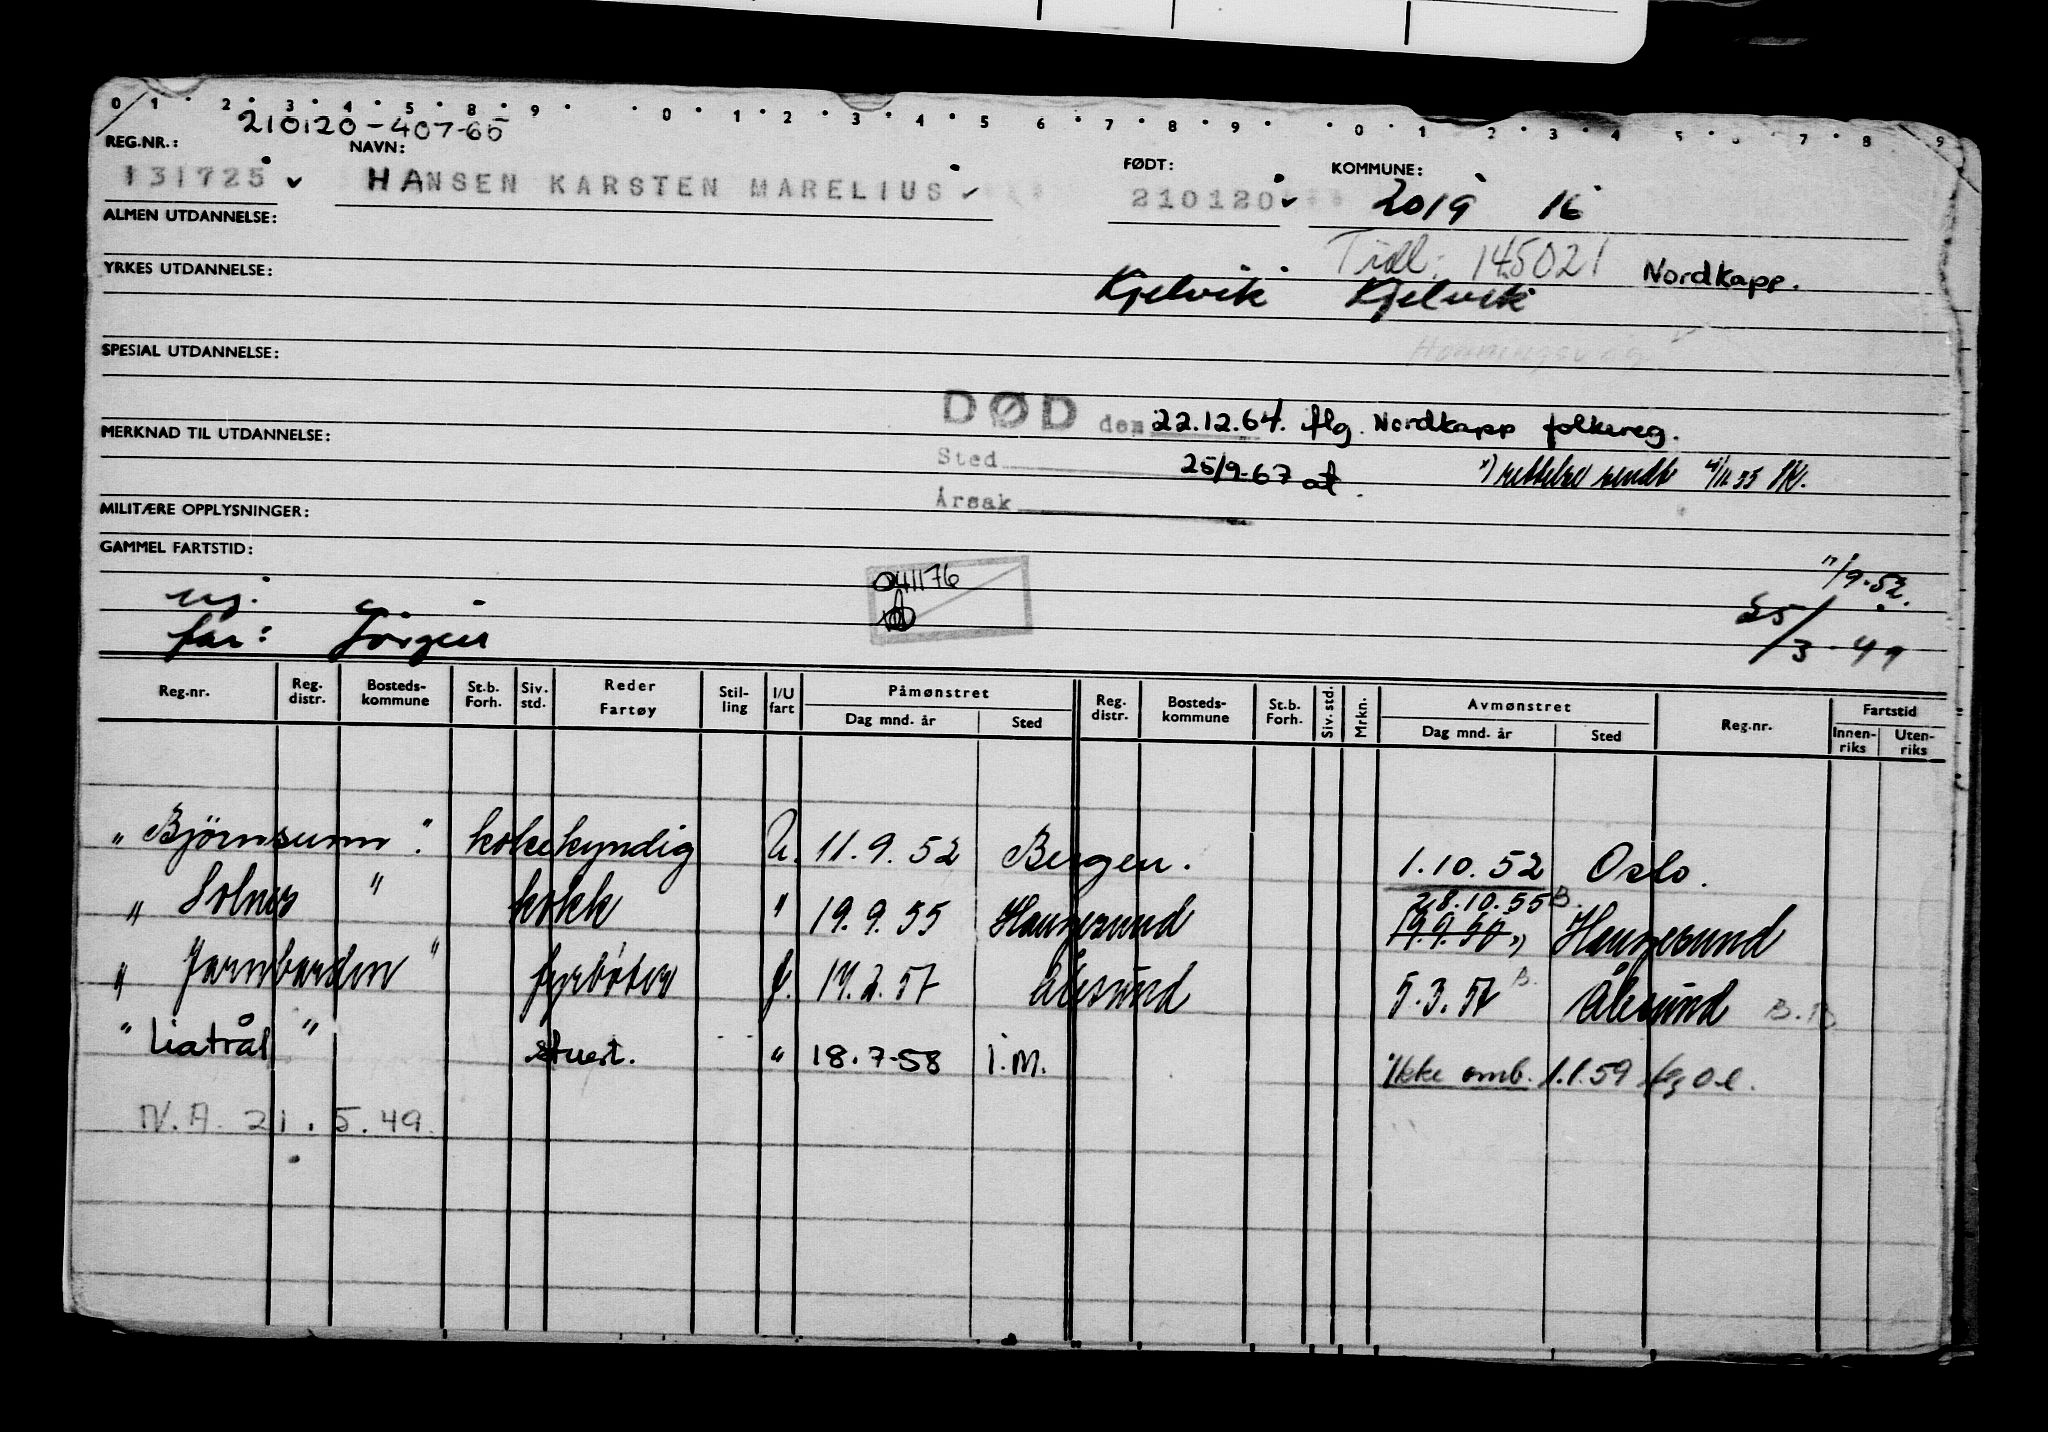 0 1 2 3 4 5 8 9 0 1 2 3 4 5 6 7 8 9 0 1 2 3 4 5 7 8 9
210120-407-65
REG.NR.: NAVN: FØDT: KOMMUNE:
131725 HANSEN KARSTEN MARELIUS 210120 2019 16
ALMEN UTDANNELSE:
Tidl: 145021 Nordkapp.
YRKES UTDANNELSE: Kjelvik Kjelvik
SPESIAL UTDANNELSE: Honningsvåg
DØD den 22.12.64. flg. Nordkapp folkereg.
MERKNAD TIL UTDANNELSE:
Sted 25/9-67 at. ") rettelse sendt
Årsak
MILITÆRE OPPLYSNINGER:
GAMMEL FARTSTID:
041176
ug. 25/3-49
far: Jörgen
Reg.nr. Reg. distr. Bosteds-kommune St.b. Forh. Siv. std. Reder Fartøy Stil-ling I/U fart Påmønstret Dag mnd. år Sted Reg. distr. Bosteds-kommune St.b. Forh. Siv. std. Mrkn. Avmønstret Dag mnd. år Sted Reg.nr. Fartstid Innen-riks Uten-riks
" Björnsunn " kokekyndig U. 11.9.52 Bergen. 1.10.52 Oslo.
28.10.55 B.
" Solnes " kokk " 19.9.55 Haugesund 19.9.50 ") Haugesund
" Jarmbarden " fyrbøter 5.3.57 B. Ålesund Ålesund
" Liatrål " stuert. " 18.7-58 I.M. Ikke omb. 1.1.59
N.A. 21.5.49.